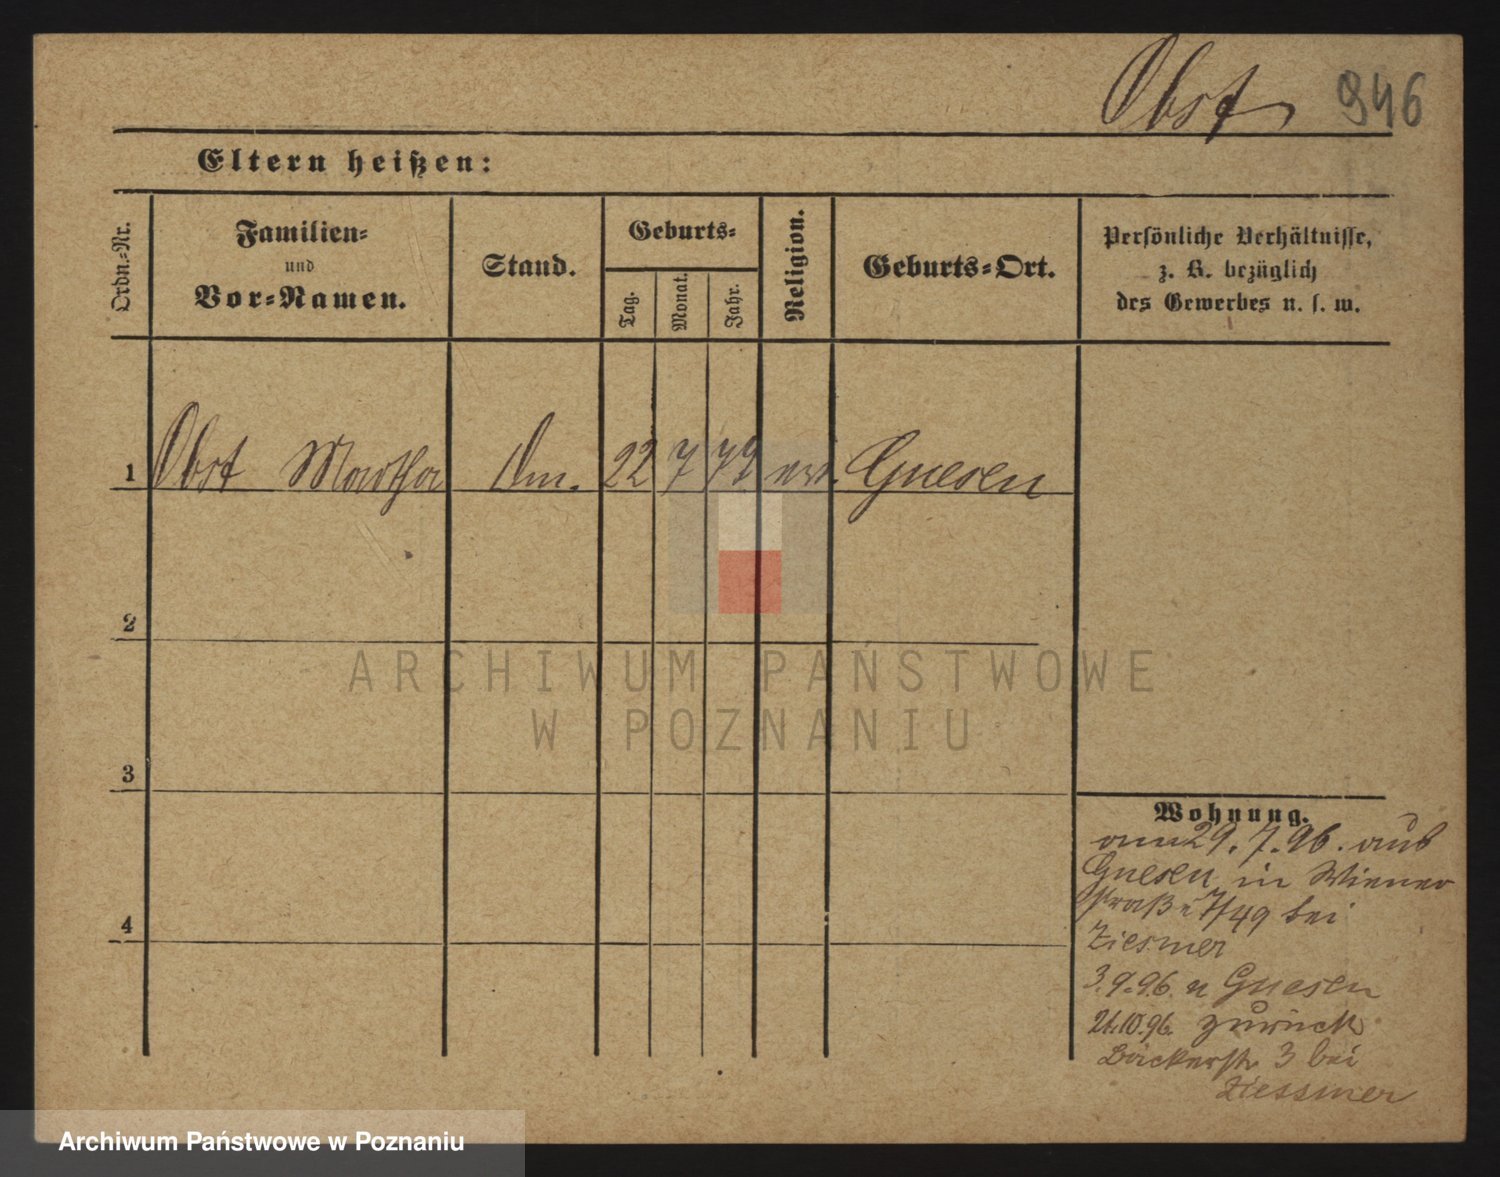 Obst 946
Eltern heißen:
Ordn.-Nr.
Familien-
und
Vor-Namen.
Stand.
Geburts-
Tag.
Monat.
Jahr.
Religion.
Geburts-Ort.
Persönliche Verhältnisse,
z. B. bezüglich
des Gewerbes u. s. w.
1 Obst Martha 22 7 79 Gnesen
2
3
4
Wohnung.
am 29. 7. 96. aus
Gnesen in Wiener
straße 7/49 bei
Ziesmer
3.9.96 n Gnesen
21.10.96. zurück
Bäckerstr 3 bei
Ziessmer
ARCHIWUM PAŃSTWOWE
W POZNANIU
Archiwum Państwowe w Poznaniu